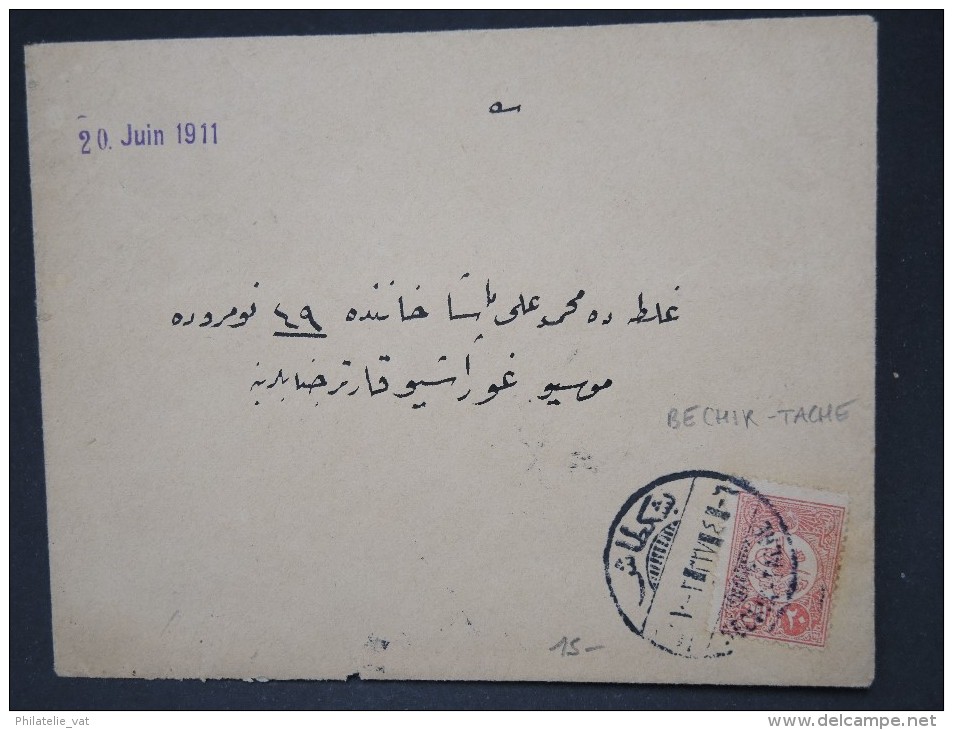 20. Juin 1911
غلطه ده محمد علی پاشا خاننده ٤٩ نومروده
موسیو غوراشیو قارتر جنابلرینه
BECHIK-TACHE
بشكطاش
٢٠
15-
Philatelie_vat
www.delcampe.net